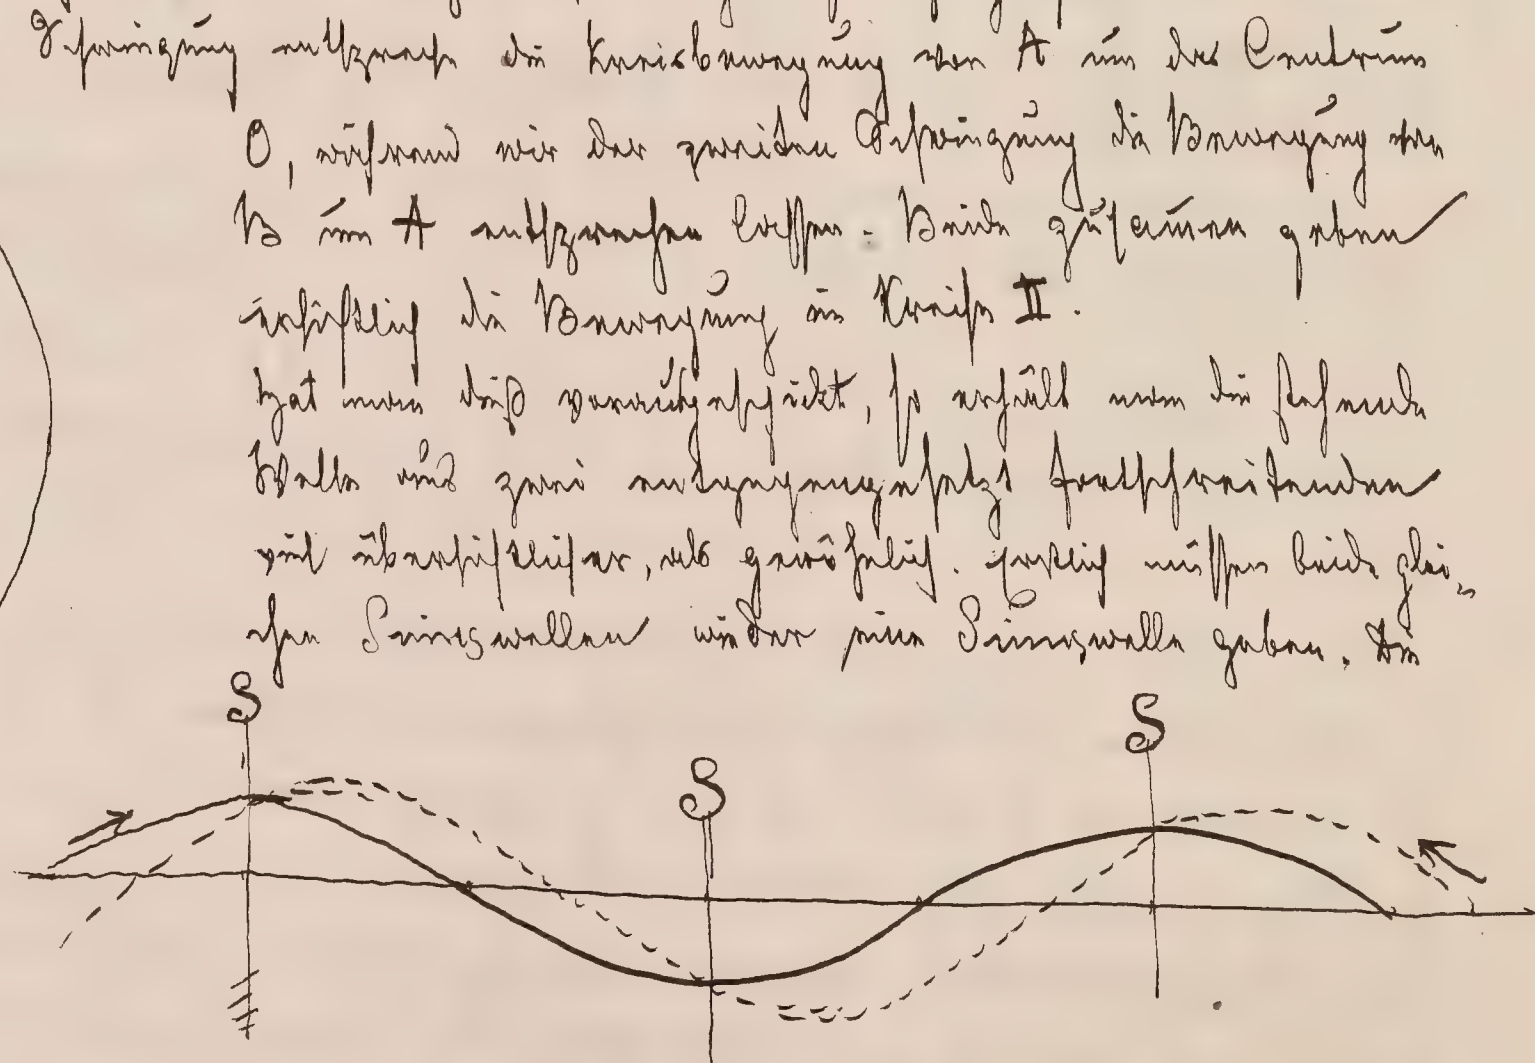 Schwingung entspreche die Kreisbewegung von A um das Centrum
O, während wir der zweiten Schwingung die Bewegung von
B um A entsprechen lassen. Beide zusammen geben
ersichtlich die Bewegung im Kreise II.
Hat man dieß vorausgeschickt, so erhält man die stehende
Welle aus zwei entgegengesetzt fortschreitenden
viel übersichtlicher, als gewöhnlich. Erstlich müssen beide glei-
chen Sinuswellen wieder eine Sinuswelle geben. Die
S
S
S